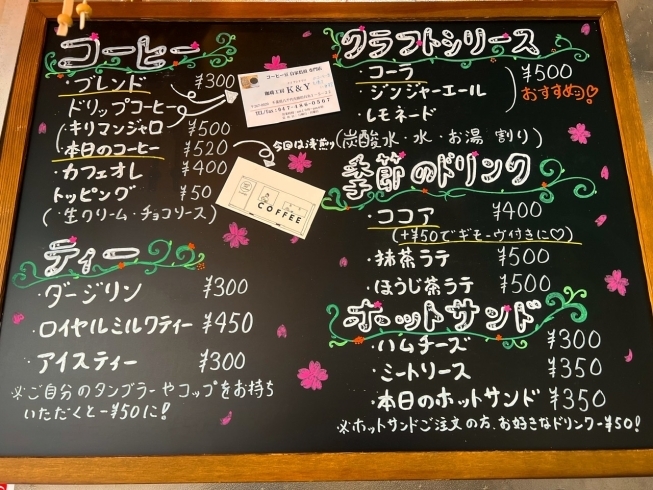 コーヒー
・ブレンド ¥300
ドリップコーヒー
(キリマンジャロ ¥500
・本日のコーヒー ¥520
・カフェオレ ¥400
トッピング ¥50
(・生クリーム・チョコソース)
今回は浅煎り
K&Y
TEL/fax : 047-486-0567
COFFEE
ティー
・ダージリン ¥300
・ロイヤルミルクティー ¥450
・アイスティー ¥300
※ご自分のタンブラーやコップをお持ち
いただくと-¥50に!
クラフトシリーズ
・コーラ
・ジンジャーエール
・レモネード
¥500
おすすめ♡!
(炭酸水・水・お湯 割り)
季節のドリンク
・ココア ¥400
(+¥50でギモーヴ付きに♡)
・抹茶ラテ ¥500
・ほうじ茶ラテ ¥500
ホットサンド
・ハムチーズ ¥300
・ミートソース ¥350
・本日のホットサンド ¥350
※ホットサンドご注文の方、お好きなドリンクー¥50!